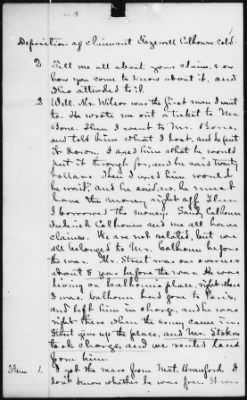 Deposition of Claimant Cont'd.
Q Tell me all about your claim, & on
how you come to know about it, and
who attended to it.
A Well. Mr. Wilson was the first man I went
to. He wrote me out a ticket to Mr.
Bone. Then I went to Mr. Bone,
and told him what I lost and he put
it down. I axed him what he would
put it through for, and he said twenty
dollars. Then I axed him would
he wait, and he said, no, he must
have the money right off. Then
I borrowed the money. Calhoun
Calhoun and me all have
claims. We are not related, but we
all belonged to Mr. Calhoun before
the war. Mr. Street was our overseer
about 8 year before the war. He was
living on Calhoun's place, right where
I was. Calhoun
and left him in charge, and he was
right there when the army came in.
Street give up the place, and Mr. Stokes
took charge, and we rented land
from him.
Item 1. I got the mare from Mat. I
don't know whether he was free. It was